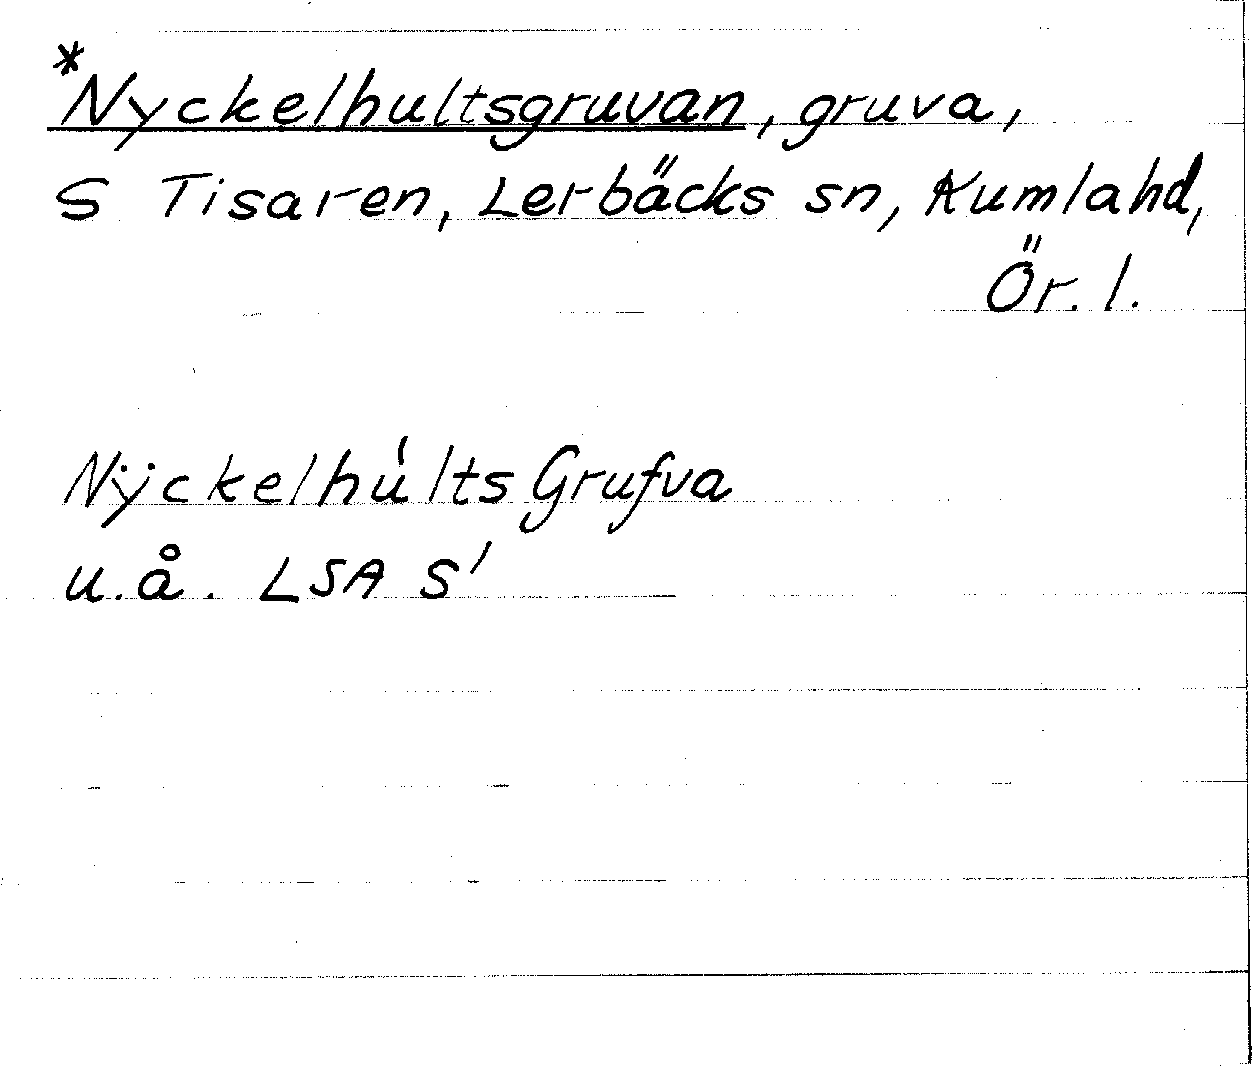 *Nyckelhultsgruvan, gruva,
S Tisaren, Lerbäcks sn, Kumla hd,
Ör. l.
Nÿckelhúlts Grufva
u.å. LSA S'